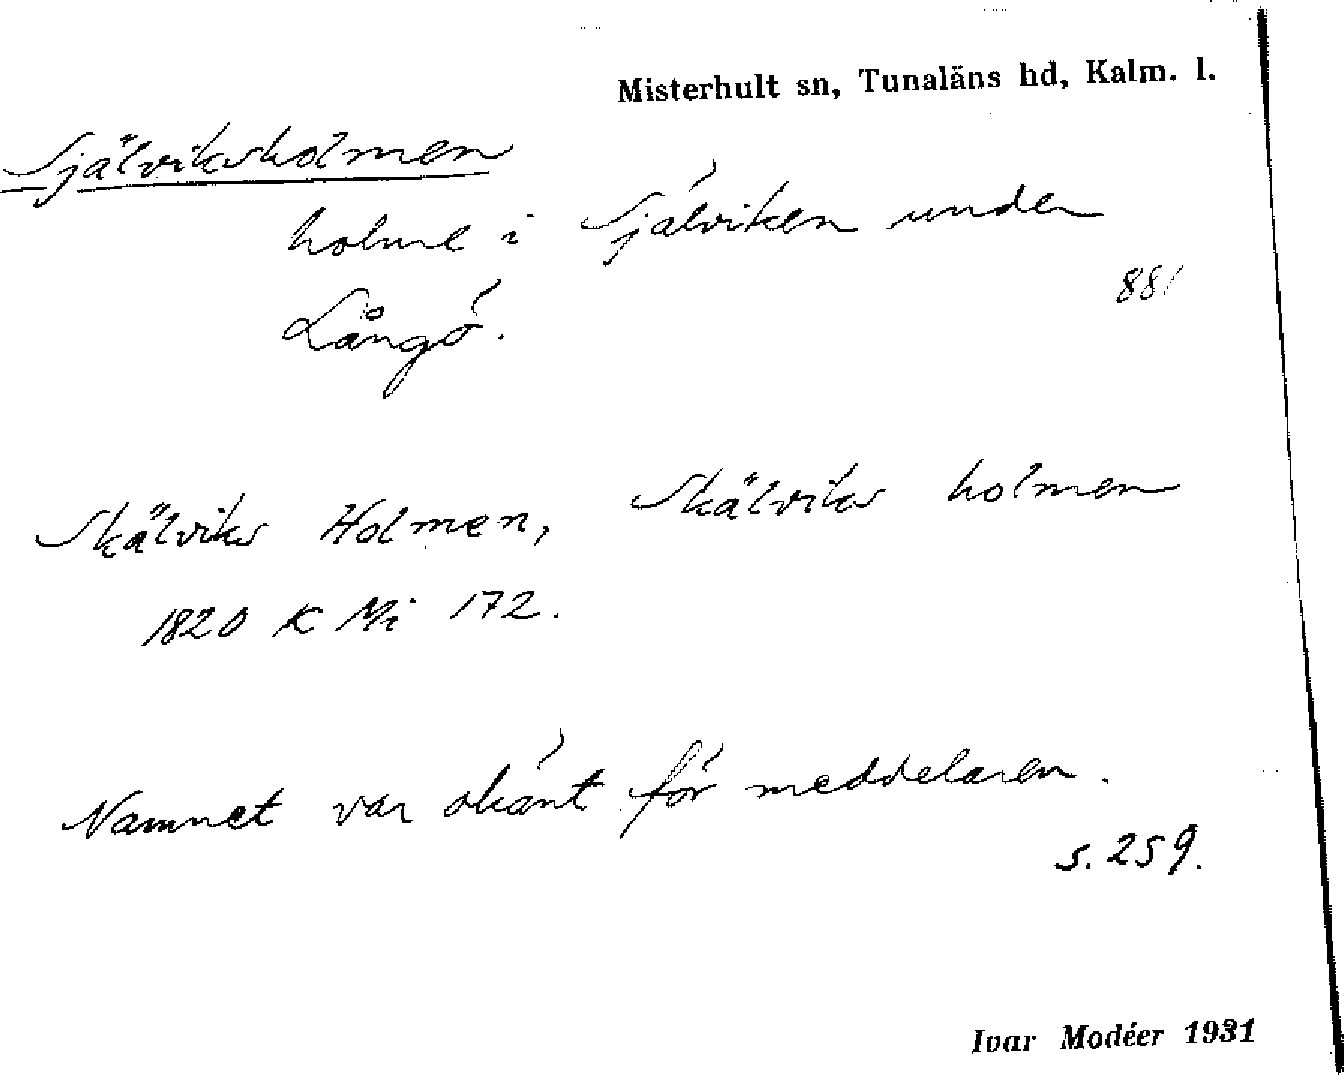 Misterhult sn, Tunaläns hd, Kalm. l.
Själviksholmen
holme i Själviken under
881
Långö.
Skälviks Holmen, Skälviks holmen
1820 K Mi 172.
Namnet var okänt för meddelaren.
s. 259.
Ivar Modéer 1931